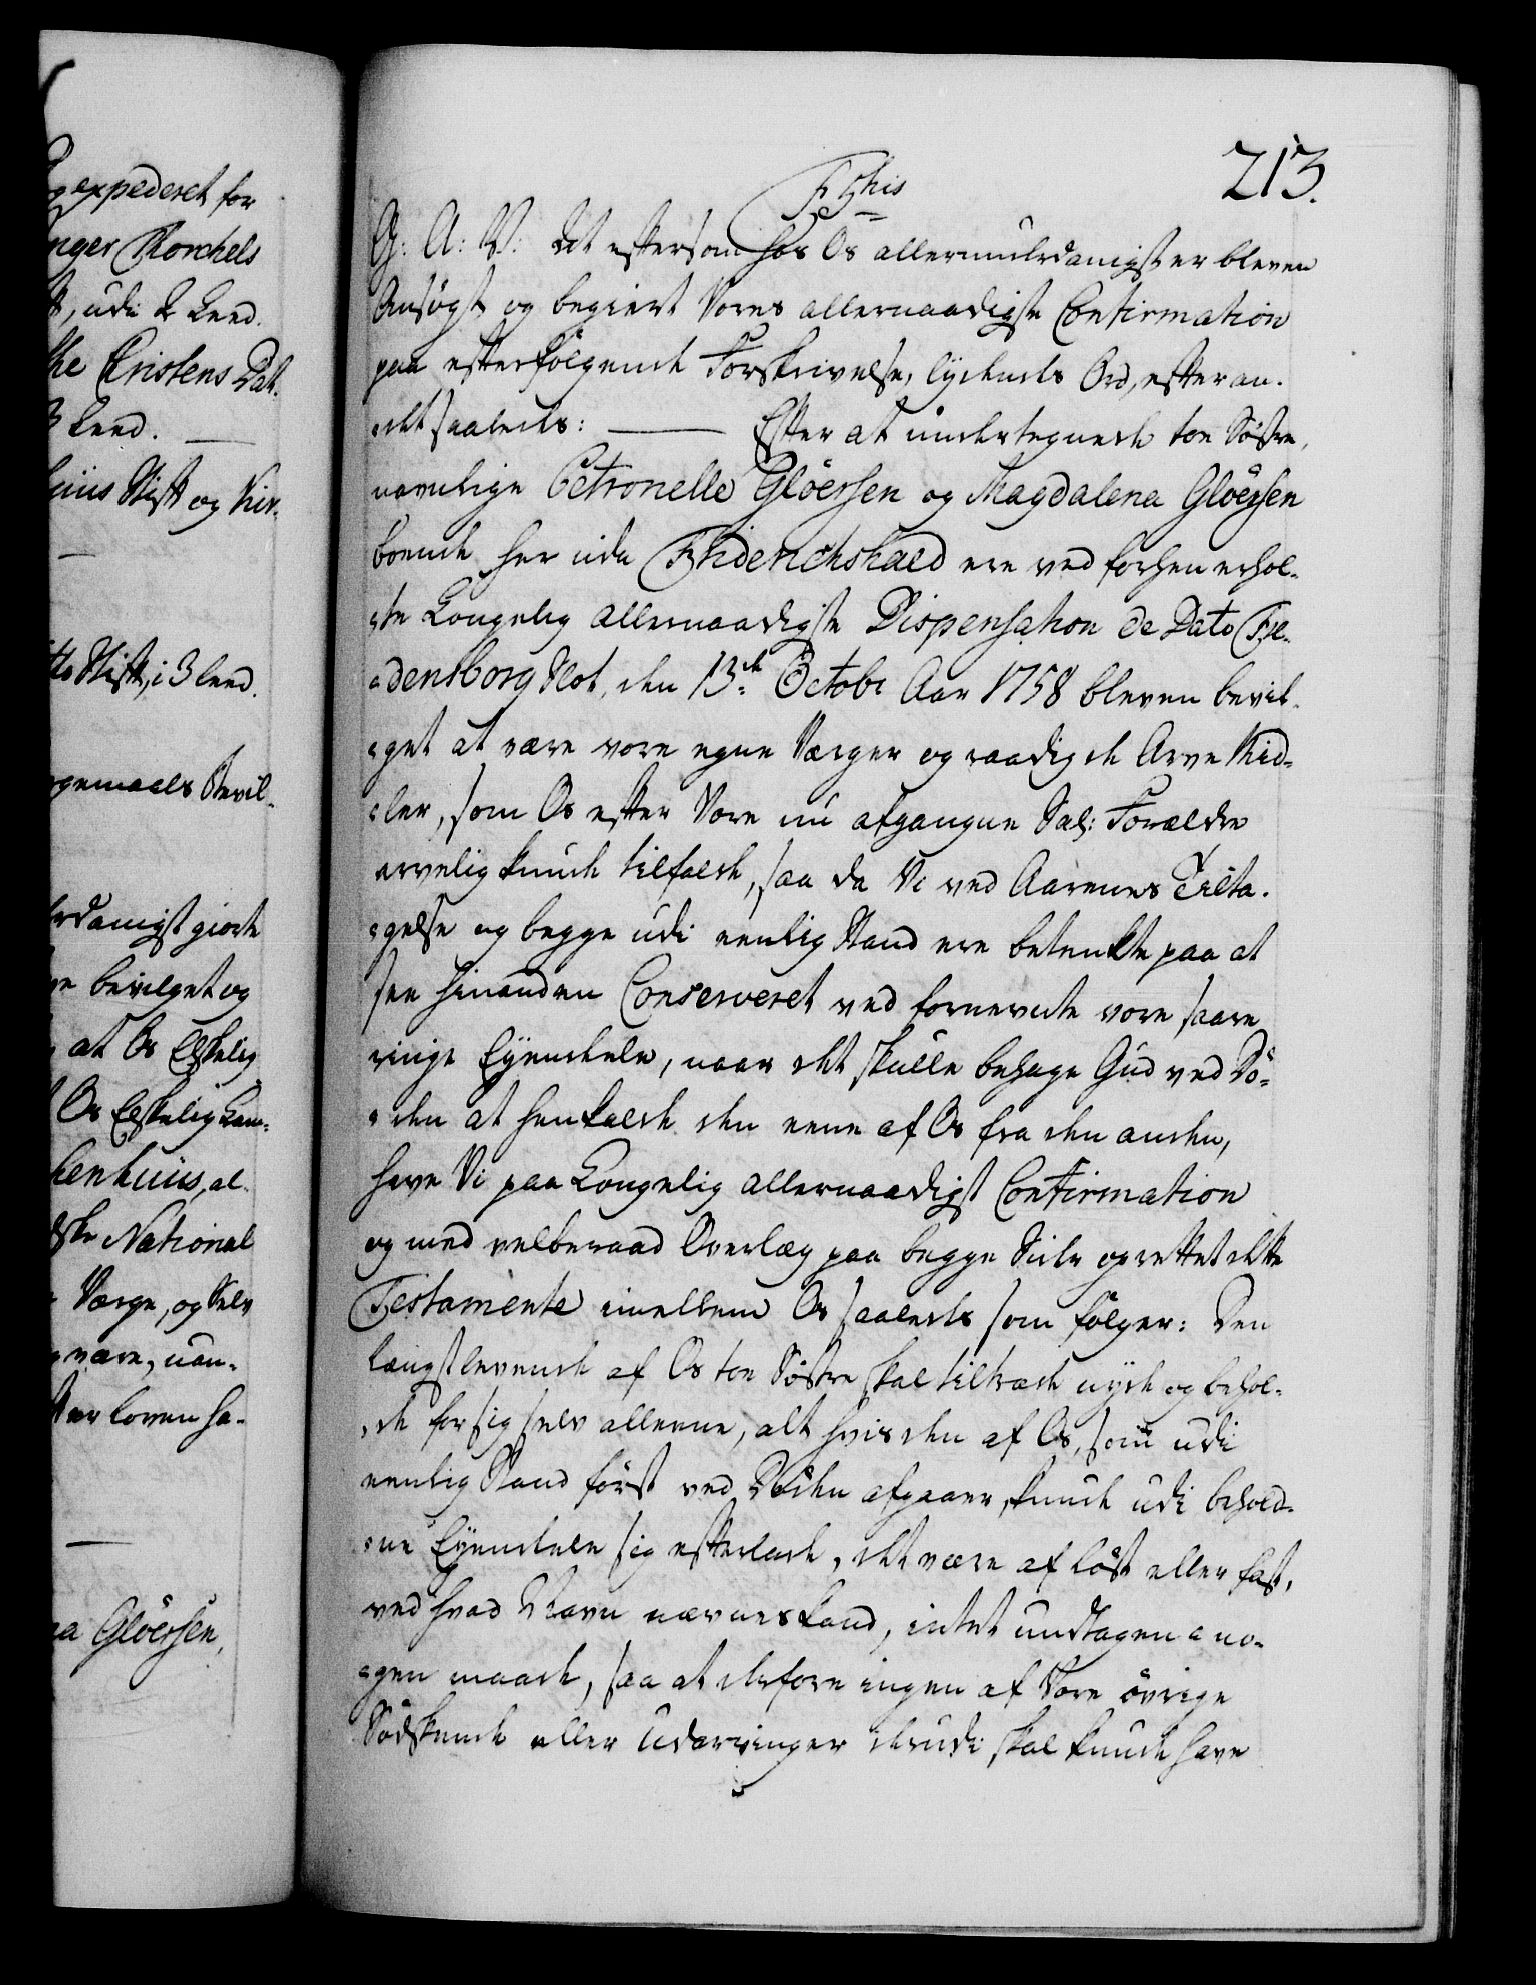 g expederet for
nger Rorchels
t, udi 2 Leed.
the Cristens Dat.
3 Leed.
huus Stift og Kir-
tts Stift, i 3 leed.
gemaals Bevil-
rdanigst giorte
ve bevilget og
at Os Elskelig
Os Elskelig Lars
kenhuus, al-
ske National
Værge, og Selv
være, uan-
ter loven ha-
na Glöersen,
213.
F 5this
G: A: V: At eftersom hos Os allerunderdanigst er bleven
Ansøgt og begiert Vores allernaadigste Confirmation
paa efterfølgende Forskrivelse, lydende Ord, efter an-
det saaledes: Efter at undertegnede toe Søstre,
navnlige Petronelle Glöersen og Magdalena Glöersen
boende her udi Friderichshald ere ved forhen erhol-
te Kongelig allernaadigste Dispensation de Dato Fre-
densborg Slot, den 13de Octobr Aar 1758 bleven bevil-
get at være vore egne Værger og raadig de Arve Mid-
ler, som Os efter Vore nu afgangne Sal: Forældre
arvelig kunde tilfalde, saa da Vi ved Aarenes Tilta-
gelse og begge udi eenlig Stand ere betenkte paa at
see hinanden Conserveret ved fornevnte vore saare
ringe Eyendele, naar det skulle behage Gud ved Dö-
den at henkalde den eene af Os fra den anden,
have Vi paa Kongelig allernaadigst Confirmation
og med velberaad Overlæg paa begge Sider oprettet dette
Testamente imellem Os saaledes som følger: Den
længstlevende af Os toe Søstre skal tiltræde nyde og behol-
de for sig selv alleene, alt hvis den af Os, som udi
eenlig Stand först ved Döden afgaaer, kunde udi behold-
ne Eyendele sig efterlade, det være af löst eller fast,
ved hvad Navn nævnes kand, intet undtagen i no-
gen maade, saa at derfore ingen af Vore övrige
Södskende eller Udarvinger derudi skal kunde have